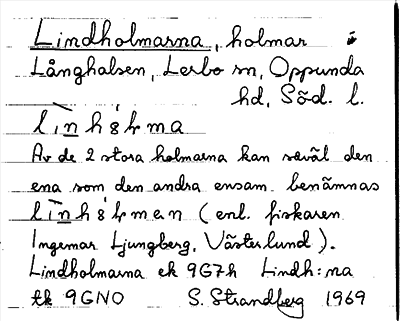 Lindholmarna, holmar i
Långhalsen, Lerbo sn, Oppunda
hd, Söd. l.
Av de 2 stora holmarna kan såväl den
ena som den andra ensam benämnas
(enl. fiskaren
Ingemar Ljungberg, Västerlund).
Lindholmarna ek 9G7h Lindh:na
tk 9GNO S. Strandberg 1969